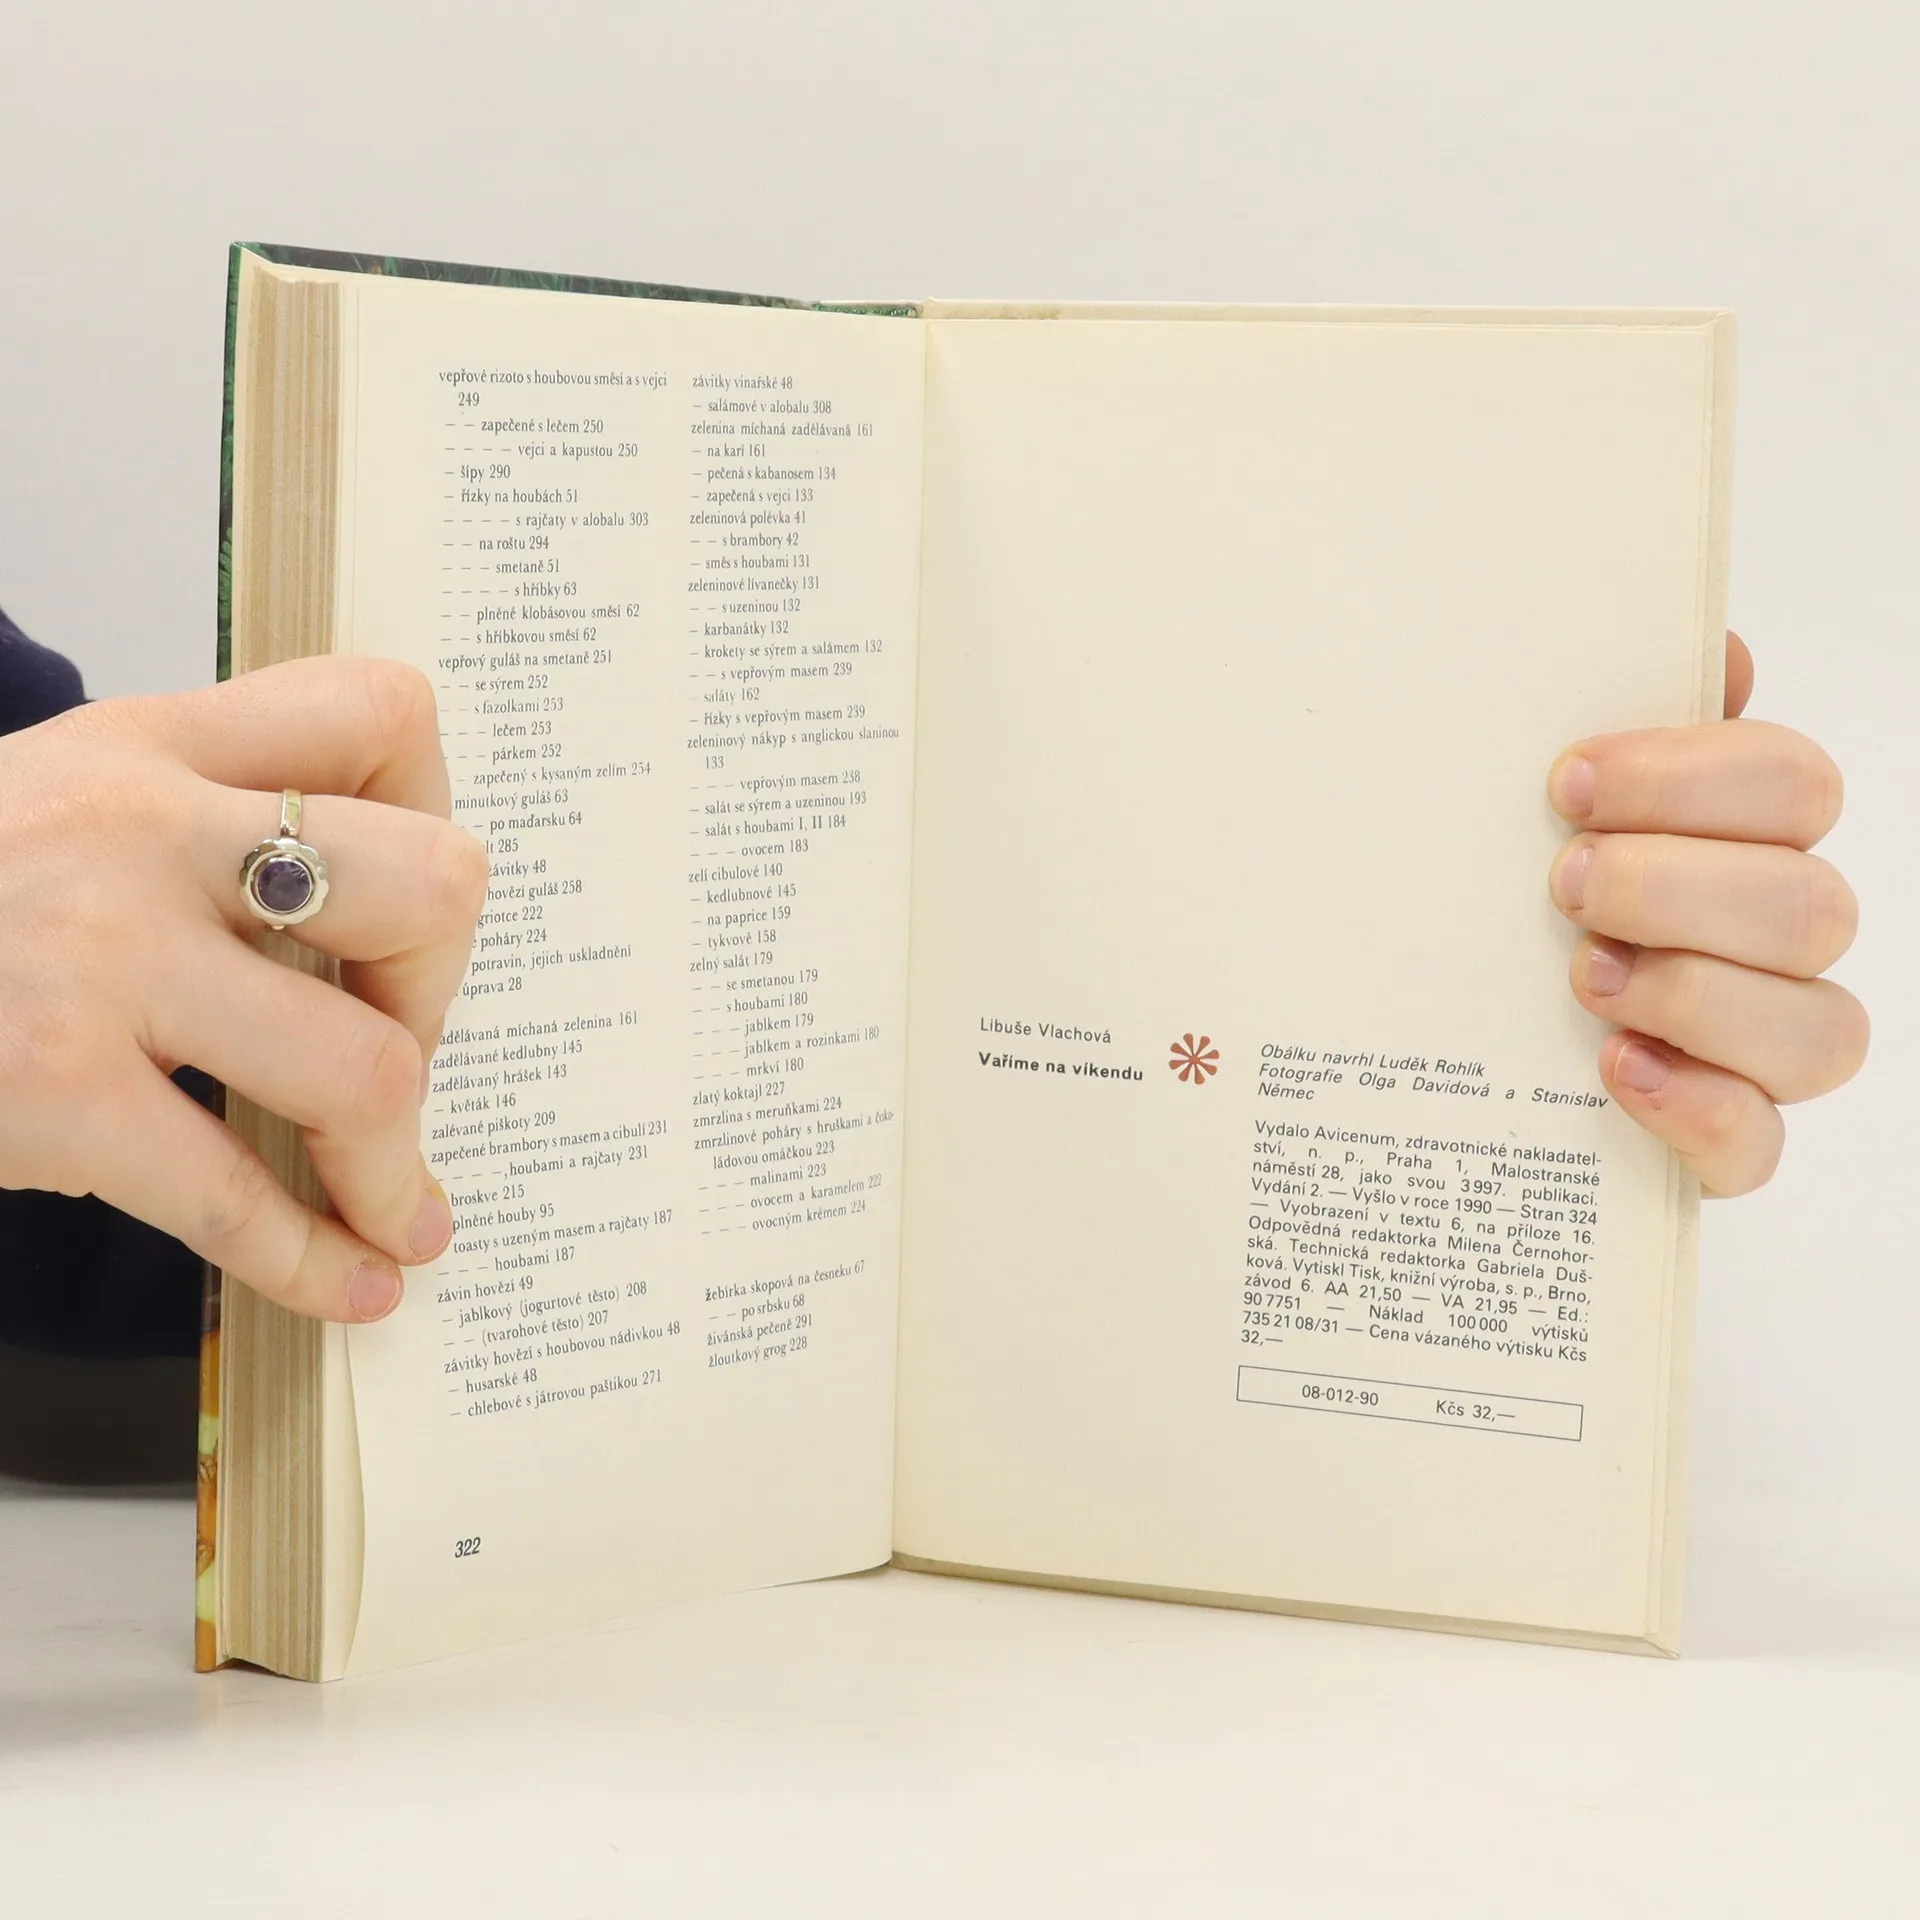 vepřové rizoto s houbovou směsí a s vejci
249
— — zapečené s lečem 250
— — — — vejci a kapustou 250
— šípy 290
— řízky na houbách 51
— — — — s rajčaty v alobalu 303
— — na roštu 294
— — — smetaně 51
— — — — s hříbky 63
— — plněné klobásovou směsí 62
— — s hříbkovou směsí 62
vepřový guláš na smetaně 251
— — se sýrem 252
— — s fazolkami 253
— — — lečem 253
— — — párkem 252
— zapečený s kysaným zelím 254
minutkový guláš 63
— po maďarsku 64
285
závitky 48
hovězí guláš 258
griotce 222
poháry 224
potravin, jejich uskladnění
úprava 28
zadělávaná míchaná zelenina 161
zadělávané kedlubny 145
zadělávaný hrášek 143
— květák 146
zalévané piškoty 209
zapečené brambory s masem a cibulí 231
— — — —, houbami a rajčaty 231
broskve 215
plněné houby 95
toasty s uzeným masem a rajčaty 187
— — — houbami 187
závin hovězí 49
— jablkový (jogurtové těsto) 208
— — (tvarohové těsto) 207
závitky hovězí s houbovou nádivkou 48
— husarské 48
— chlebové s játrovou paštikou 271
322
závitky vinařské 48
— salámové v alobalu 308
zelenina míchaná zadělávaná 161
— na karí 161
— pečená s kabanosem 134
— zapečená s vejci 133
zeleninová polévka 41
— — s brambory 42
— směs s houbami 131
zeleninové lívanečky 131
— — s uzeninou 132
— karbanátky 132
— krokety se sýrem a salámem 132
— — s vepřovým masem 239
— saláty 162
— řízky s vepřovým masem 239
zeleninový nákyp s anglickou slaninou
133
— — — vepřovým masem 238
— salát se sýrem a uzeninou 193
— salát s houbami I, II 184
— — — ovocem 183
zelí cibulové 140
— kedlubnové 145
— na paprice 159
— tykvové 158
zelný salát 179
— — se smetanou 179
— — s houbami 180
— — — jablkem 179
— — — jablkem a rozinkami 180
— — — mrkví 180
zlatý koktajl 227
zmrzlina s meruňkami 224
zmrzlinové poháry s hruškami a čoko-
ládovou omáčkou 223
— — — malinami 223
— — — ovocem a karamelem 222
— — — ovocným krémem 224
žebírka skopová na česneku 67
— — po srbsku 68
živánská pečeně 291
žloutkový grog 228
Libuše Vlachová
Vaříme na víkendu
Obálku navrhl Luděk Rohlík
Fotografie Olga Davidová a Stanislav
Němec
Vydalo Avicenum, zdravotnické nakladatel-
ství, n. p., Praha 1, Malostranské
náměstí 28, jako svou 3997. publikaci.
Vydání 2. — Vyšlo v roce 1990 — Stran 324
— Vyobrazení v textu 6, na příloze 16.
Odpovědná redaktorka Milena Černohor-
ská. Technická redaktorka Gabriela Duš-
ková. Vytiskl Tisk, knižní výroba, s. p., Brno,
závod 6. AA 21,50 — VA 21,95 — Ed.:
90 7751 — Náklad 100 000 výtisků
735 21 08/31 — Cena vázaného výtisku Kčs
32,—
08-012-90 Kčs 32,—